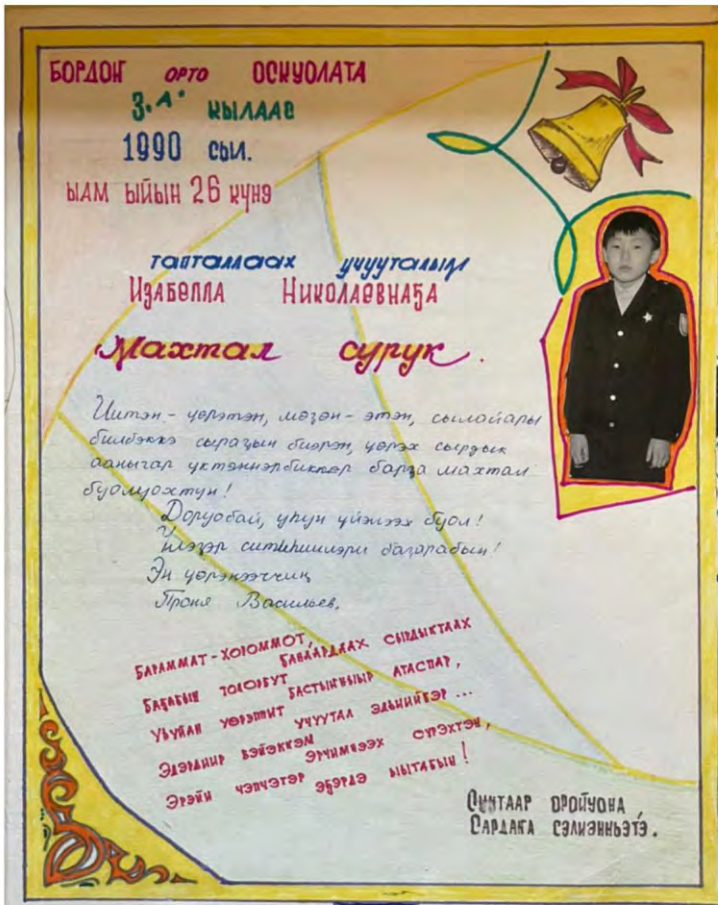 БОРДОҤ ОРТО ОСКУОЛАТА
3.А. КЫЛААС
1990 СЫЛ.
ЫАМ ЫЙЫН 26 КҮНЭ
ТАПТАЛЛААХ УЧУУТАЛЫМ
ИЗАБЕЛЛА НИКОЛАЕВНАҔА
Махтал сурук.
Иитэн - үөрэтэн, мөҕөн - этэн, сылайары
билбэккэ сыраҕын биэрэн, үөрэх сырдык
ааныгар үктэннэрбиккэр барҕа махтал
буолуохтун!
Доруобай, уһун үйэлээх буол!
Үлэҕэр ситиһиилэри баҕарабын!
Эн үөрэнээччиҥ
Проня Васильев.
БАРАММАТ-ХОЮММОТ,
СЫРДЫКТААХ
БАҔАБЫН ТОЛОРБУТ
УҺУЙАН ҮӨРЭППИТ БАСТЫҤҤЫР АТАСПАР,
УЧУУТАЛ ЭДЬИЙБЭР...
ЭРЧИМНЭЭХ СҮРЭХТЭН,
ЭРЭЙИ ЧЭПЧЭТЭР ЭҔЭРДЭ ЫЫТАБЫН!
СУНТААР ОРОЙУОНА,
САРДАҤА СЭЛИЭННЬЭТЭ.